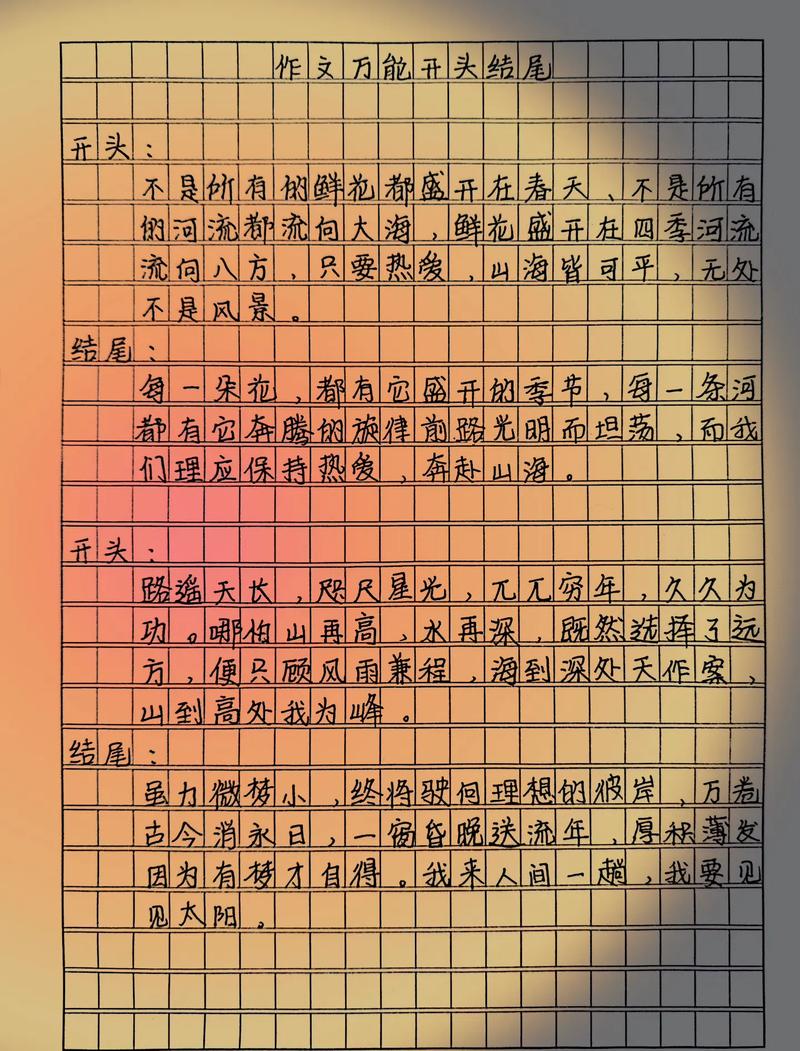 作文万能开头结尾
开头：
不是所有的鲜花都盛开在春天、不是所有
的河流都流向大海，鲜花盛开在四季河流
流向八方，只要热爱，山海皆可平，无处
不是风景。
结尾：
每一朵花，都有它盛开的季节，每一条河
都有它奔腾的旋律前路光明而坦荡，而我
们理应保持热爱，奔赴山海。
开头：
路遥天长，咫尺星光，兀兀穷年，久久为
功。哪怕山再高，水再深，既然选择了远
方，便只顾风雨兼程，海到深处天作案，
山到高处我为峰。
结尾：
虽力微梦小，终将驶向理想的彼岸，万卷
古今消永日，一窗昏晚送流年，厚积薄发
因为有梦才自得。我来人间一趟，我要见
见太阳。